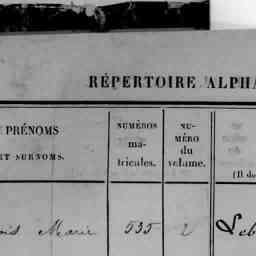 RÉPERTOIRE ALPHA
PRÉNOMS
ET SURNOMS.
NUMÉROS
ma-
tricules.
NU-
MÉRO
du
volume.
(B de
Marie 535 2 Leb